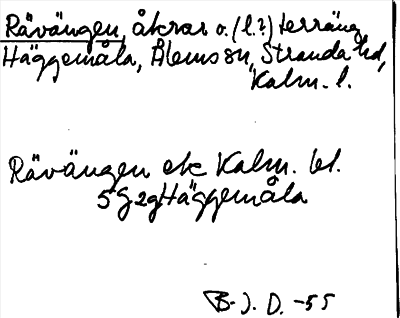 Rävängen, åkrar o. (l.?) terräng
Häggemåla, Ålems sn, Stranda hd,
Kalm. l.
Rävängen ek Kalm. bl.
5G2g Häggemåla
B. J. D. -55